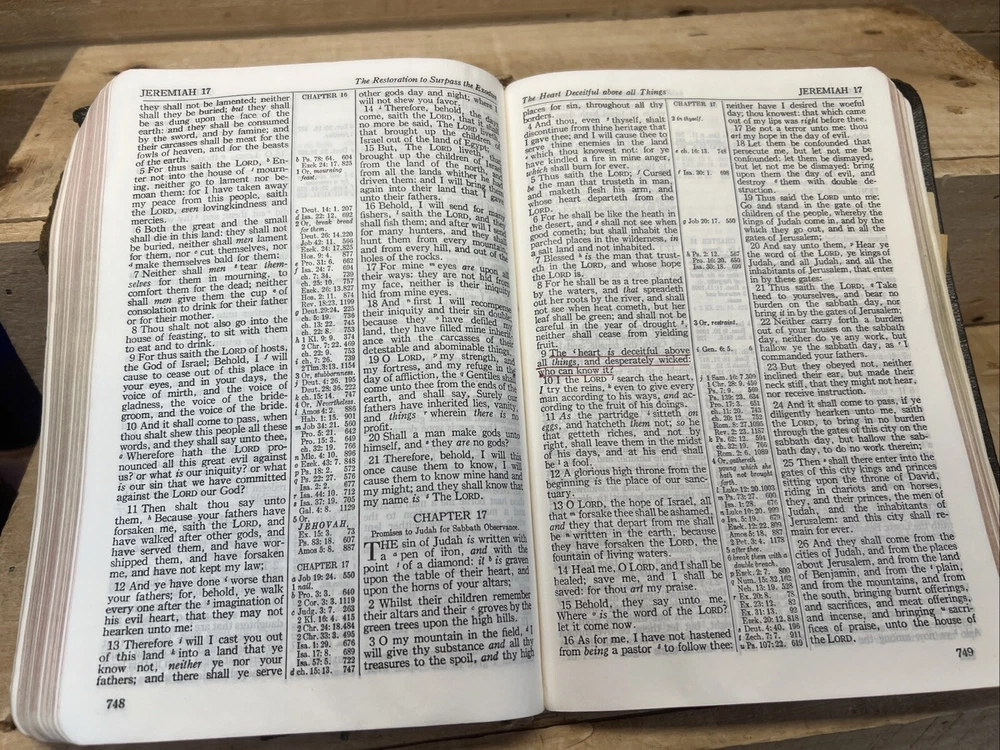 JEREMIAH 17
The Restoration to Surpass the Exodus
they shall not be lamented; neither
shall they be buried; but they shall
be as dung upon the face of the
earth: and they shall be consumed
by the sword, and by famine; and
their carcasses shall be meat for the
fowls of heaven, and for the beasts
of the earth.
5 For thus saith the LORD, En-
ter not into the house of mourn-
ing, neither go to lament nor be-
moan them: for I have taken away
my peace from this people, saith
the LORD, even lovingkindness and
mercies.
6 Both the great and the small
shall die in this land: they shall not
be buried, neither shall men lament
for them, nor cut themselves, nor
make themselves bald for them:
7 Neither shall men tear them-
selves for them in mourning, to
comfort them for the dead; neither
shall men give them the cup of
consolation to drink for their father
or for their mother.
8 Thou shalt not also go into the
house of feasting, to sit with them
to eat and to drink.
9 For thus saith the LORD of hosts,
the God of Israel; Behold, I will
cause to cease out of this place in
your eyes, and in your days, the
voice of mirth, and the voice of
gladness, the voice of the bride-
groom, and the voice of the bride.
10 And it shall come to pass, when
thou shalt shew this people all these
words, and they shall say unto thee,
Wherefore hath the LORD pro-
nounced all this great evil against
us? or what is our iniquity? or what
is our sin that we have committed
against the LORD our God?
11 Then shalt thou say unto
them, Because your fathers have
forsaken me, saith the LORD, and
have walked after other gods, and
have served them, and have wor-
shipped them, and have forsaken
me, and have not kept my law;
12 And ye have done worse than
your fathers; for, behold, ye walk
every one after the imagination of
his evil heart, that they may not
hearken unto me:
13 Therefore will I cast you out
of this land into a land that ye
know not, neither ye nor your
fathers; and there shall ye serve
CHAPTER 16
h Ps. 78: 64. 606
Ezek 24: 17. 825
1 Or, mourning
feast.
c Deut. 14: 1. 207
d Isa. 22: 12. 692
2 Or, break bread
for them.
Deut. 26: 14. 220
Job 42: 11. 566
Ezek. 24: 17. 825
Hos. 9: 4. 877
e Pro. 31: 6. 662
f Isa. 24: 7. 694
ch. 7: 34. 739
ch. 25: 10. 757
Ezek. 26: 13. 827
Hos. 2: 11. 874
Rev. 18:23. 1199
g Deut. 29:24. 225
ch. 5: 19. 736
ch. 13: 22. 745
ch. 22: 8. 753
h 1 Ki. 9: 9. 374
2 Chr. 7: 22. 469
ch. 22: 9. 753
i ch. 7: 26. 739
2 Tim. 3:13. 1154
3 Or, stubbornness.
j Deut. 4: 26. 195
Deut. 28: 36. 222
k ch. 15: 14. 747
4 Or, Nevertheless.
l Amos 4: 2. 886
Hab. 1: 15. 901
m Job 34: 21. 560
Pro. 5: 21. 642
Pro. 15: 3. 649
ch. 32: 19. 766
n Mic. 4: 10. 896
o Ezek. 43: 7. 848
p Ps. 18: 2. 572
q Ps. 22: 27. 576
Isa. 2: 2. 677
r Isa. 44: 10. 712
s Isa. 37: 19. 705
Gal. 4: 8. 1129
5 Or,
JEHOVAH,
Ex. 15: 3. 73
Ps. 83: 18. 607
Amos 5: 8. 887
CHAPTER 17
a Job 19: 24. 550
1 nail.
b Pro. 3: 3. 640
2 Cor. 3: 3. 1119
c Judg. 3: 7. 263
2 Ki. 16: 4. 415
2 Chr. 24: 18.484
2 Chr. 33: 3. 495
Isa. 1: 29. 676
Isa. 17: 8. 689
Isa. 57: 5. 722
d ch. 15: 13. 747
other gods day and night, where I
will not shew you favor.
14 Therefore, behold, the days
come, saith the LORD, that it
no more be said, The LORD liveth,
that brought up the children of
Israel out of the land of Egypt;
15 But, The LORD liveth, that
brought up the children of
from the land of the north,
from all the lands whither he had
driven them: and I will bring
again into their land that I gave
unto their fathers.
16 Behold, I will send for many
fishers, saith the LORD, and they
shall fish them; and after will I send
for many hunters, and they shall
hunt them from every mountain,
and from every hill, and out of the
holes of the rocks.
17 For mine eyes are upon all
their ways: they are not hid from
my face, neither is their iniquity
hid from mine eyes.
18 And first I will recompense
their iniquity and their sin double;
because they have defiled my
land, they have filled mine inherit-
ance with the carcasses of their
detestable and abominable things.
19 O LORD, my strength, and
my fortress, and my refuge in the
day of affliction, the Gentiles shall
come unto thee from the ends of the
earth, and shall say, Surely our
fathers have inherited lies, vanity,
and things wherein there is no
profit.
20 Shall a man make gods unto
himself, and they are no gods?
21 Therefore, behold, I will this
once cause them to know, I will
cause them to know mine hand and
my might; and they shall know that
my name is The LORD.
CHAPTER 17
Promises to Judah for Sabbath Observance.
THE sin of Judah is written with
a pen of iron, and with the
point of a diamond: it is graven
upon the table of their heart, and
upon the horns of your altars;
2 Whilst their children remember
their altars and their groves by the
green trees upon the high hills.
3 O my mountain in the field, I
will give thy substance and all thy
treasures to the spoil, and thy high
748
The Heart Deceitful above all Things
JEREMIAH 17
places for sin, throughout all thy
borders.
4 And thou, even thyself, shalt
discontinue from thine heritage that
I gave thee; and I will cause thee to
serve thine enemies in the land
which thou knowest not: for ye
have kindled a fire in mine anger,
which shall burn for ever.
5 Thus saith the LORD; Cursed
be the man that trusteth in man,
and maketh flesh his arm, and
whose heart departeth from the
LORD.
6 For he shall be like the heath in
the desert, and shall not see when
good cometh; but shall inhabit the
parched places in the wilderness, in
a salt land and not inhabited.
7 Blessed is the man that trust-
eth in the LORD, and whose hope
the LORD is.
8 For he shall be as a tree planted
by the waters, and that spreadeth
out her roots by the river, and shall
not see when heat cometh, but her
leaf shall be green; and shall not be
careful in the year of drought,
neither shall cease from yielding
fruit.
9 The heart is deceitful above
all things, and desperately wicked:
who can know it?
10 I the LORD search the heart,
I try the reins, even to give every
man according to his ways, and ac-
cording to the fruit of his doings.
11 As the partridge sitteth on
eggs, and hatcheth them not; so he
that getteth riches, and not by
right, shall leave them in the midst
of his days, and at his end shall
be a fool.
12 A glorious high throne from the
beginning is the place of our sanc-
tuary.
13 O LORD, the hope of Israel, all
that forsake thee shall be ashamed,
and they that depart from me shall
be written in the earth, because
they have forsaken the LORD, the
fountain of living waters.
14 Heal me, O LORD, and I shall be
healed; save me, and I shall be
saved: for thou art my praise.
15 Behold, they say unto me,
Where is the word of the LORD?
let it come now.
16 As for me, I have not hastened
from being a pastor to follow thee:
CHAPTER 17
2 in thyself.
e ch. 16: 13. 748
f Isa. 30: 1. 698
g Job 20: 17. 550
h Ps. 2: 12. 567
Isa. 30: 18. 698
3 Or, restraint.
i Gen. 6: 5. 6
j 1 Sam. 16: 7. 309
Rom. 8: 27. 1095
k Ps. 62: 12. 594
ch. 32: 19. 766
Rom. 2: 6. 1089
4 Or, gathereth
young which she
hath not brought
forth.
l Luke 12: 20. 1003
m Ps. 73: 27. 600
n Luke 10: 20. 999
Amos 5: 18. 887
2 Pet. 3: 4. 1178
5 after thee.
6 break them with a
double breach.
neither have I desired the woeful
day; thou knowest: that which came
out of my lips was right before thee.
17 Be not a terror unto me: thou
art my hope in the day of evil.
18 Let them be confounded that
persecute me, but let not me be
confounded: let them be dismayed,
but let not me be dismayed: bring
upon them the day of evil, and
destroy them with double de-
struction.
19 Thus said the LORD unto me;
Go and stand in the gate of the
children of the people, whereby the
kings of Judah come in, and by the
which they go out, and in all the
gates of Jerusalem;
20 And say unto them, Hear ye
the word of the LORD, ye kings of
Judah, and all Judah, and all the
inhabitants of Jerusalem, that enter
in by these gates:
21 Thus saith the LORD; Take
heed to yourselves, and bear no
burden on the sabbath day, nor
bring it in by the gates of Jerusalem;
22 Neither carry forth a burden
out of your houses on the sabbath
day, neither do ye any work, but
hallow ye the sabbath day, as I
commanded your fathers.
23 But they obeyed not, neither
inclined their ear, but made their
neck stiff, that they might not hear,
nor receive instruction.
24 And it shall come to pass, if ye
diligently hearken unto me, saith
the LORD, to bring in no burden
through the gates of this city on the
sabbath day, but hallow the sab-
bath day, to do no work therein;
25 Then shall there enter into the
gates of this city kings and princes
sitting upon the throne of David,
riding in chariots and on horses,
they, and their princes, the men of
Judah, and the inhabitants of
Jerusalem: and this city shall re-
main for ever.
26 And they shall come from the
cities of Judah, and from the places
about Jerusalem, and from the land
of Benjamin, and from the plain,
and from the mountains, and from
the south, bringing burnt offerings,
and sacrifices, and meat offerings,
and incense, and bringing sacri-
fices of praise, unto the house of
the LORD.
749